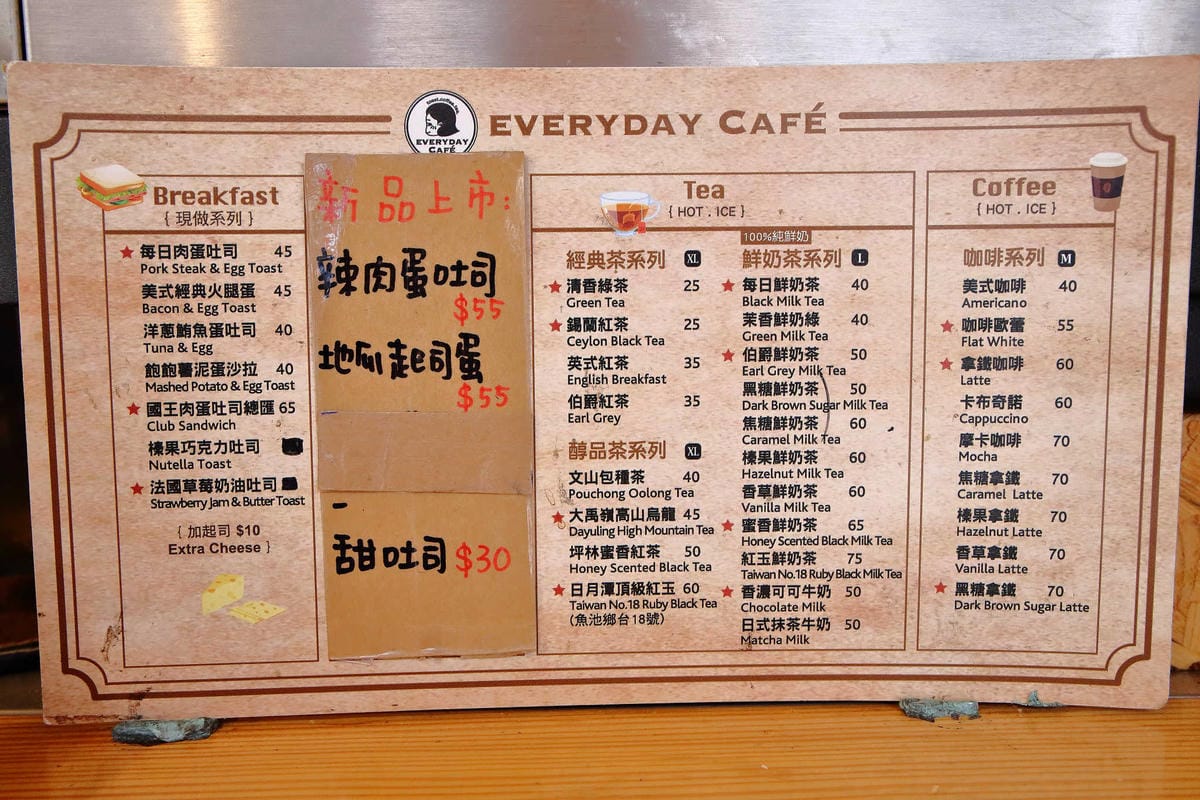 toast.coffee.tea
EVERYDAY
CAFÉ
EVERYDAY CAFÉ
Breakfast
{ 現做系列 }
每日肉蛋吐司 45
Pork Steak & Egg Toast
美式經典火腿蛋 45
Bacon & Egg Toast
洋蔥鮪魚蛋吐司 40
Tuna & Egg
飽飽薯泥蛋沙拉 40
Mashed Potato & Egg Toast
國王肉蛋吐司總匯 65
Club Sandwich
榛果巧克力吐司
Nutella Toast
法國草莓奶油吐司
Strawberry Jam & Butter Toast
{ 加起司 $10
Extra Cheese }
新品上市:
辣肉蛋吐司
$55
地瓜起司蛋
$55
甜吐司 $30
Tea
{ HOT . ICE }
經典茶系列 XL
清香綠茶 25
Green Tea
錫蘭紅茶 25
Ceylon Black Tea
英式紅茶 35
English Breakfast
伯爵紅茶 35
Earl Grey
醇品茶系列 XL
文山包種茶 40
Pouchong Oolong Tea
大禹嶺高山烏龍 45
Dayuling High Mountain Tea
坪林蜜香紅茶 50
Honey Scented Black Tea
日月潭頂級紅玉 60
Taiwan No.18 Ruby Black Tea
(魚池鄉台18號)
100%純鮮奶
鮮奶茶系列 L
每日鮮奶茶 40
Black Milk Tea
茉香鮮奶綠 40
Green Milk Tea
伯爵鮮奶茶 50
Earl Grey Milk Tea
黑糖鮮奶茶 50
Dark Brown Sugar Milk Tea
焦糖鮮奶茶 60
Caramel Milk Tea
榛果鮮奶茶 60
Hazelnut Milk Tea
香草鮮奶茶 60
Vanilla Milk Tea
蜜香鮮奶茶 65
Honey Scented Black Milk Tea
紅玉鮮奶茶 75
Taiwan No.18 Ruby Black Milk Tea
香濃可可牛奶 50
Chocolate Milk
日式抹茶牛奶 50
Matcha Milk
Coffee
{ HOT . ICE }
咖啡系列 M
美式咖啡 40
Americano
咖啡歐蕾 55
Flat White
拿鐵咖啡 60
Latte
卡布奇諾 60
Cappuccino
摩卡咖啡 70
Mocha
焦糖拿鐵 70
Caramel Latte
榛果拿鐵 70
Hazelnut Latte
香草拿鐵 70
Vanilla Latte
黑糖拿鐵 70
Dark Brown Sugar Latte